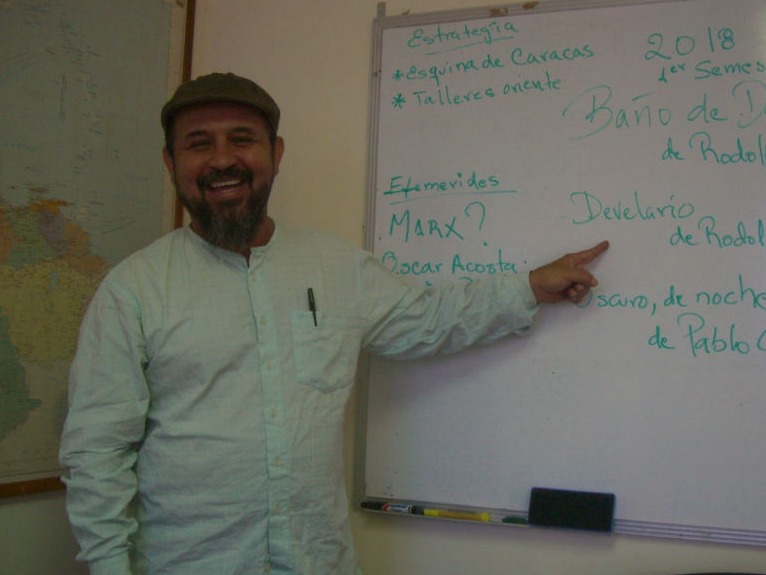 Estrategia
* Esquina de Caracas
* Talleres oriente
Efemerides
MARX?
Oscar Acosta
2018
1er Semes
Baño de D
de Rodol
Develario
de Rodol
Oscuro, de noche
de Pablo